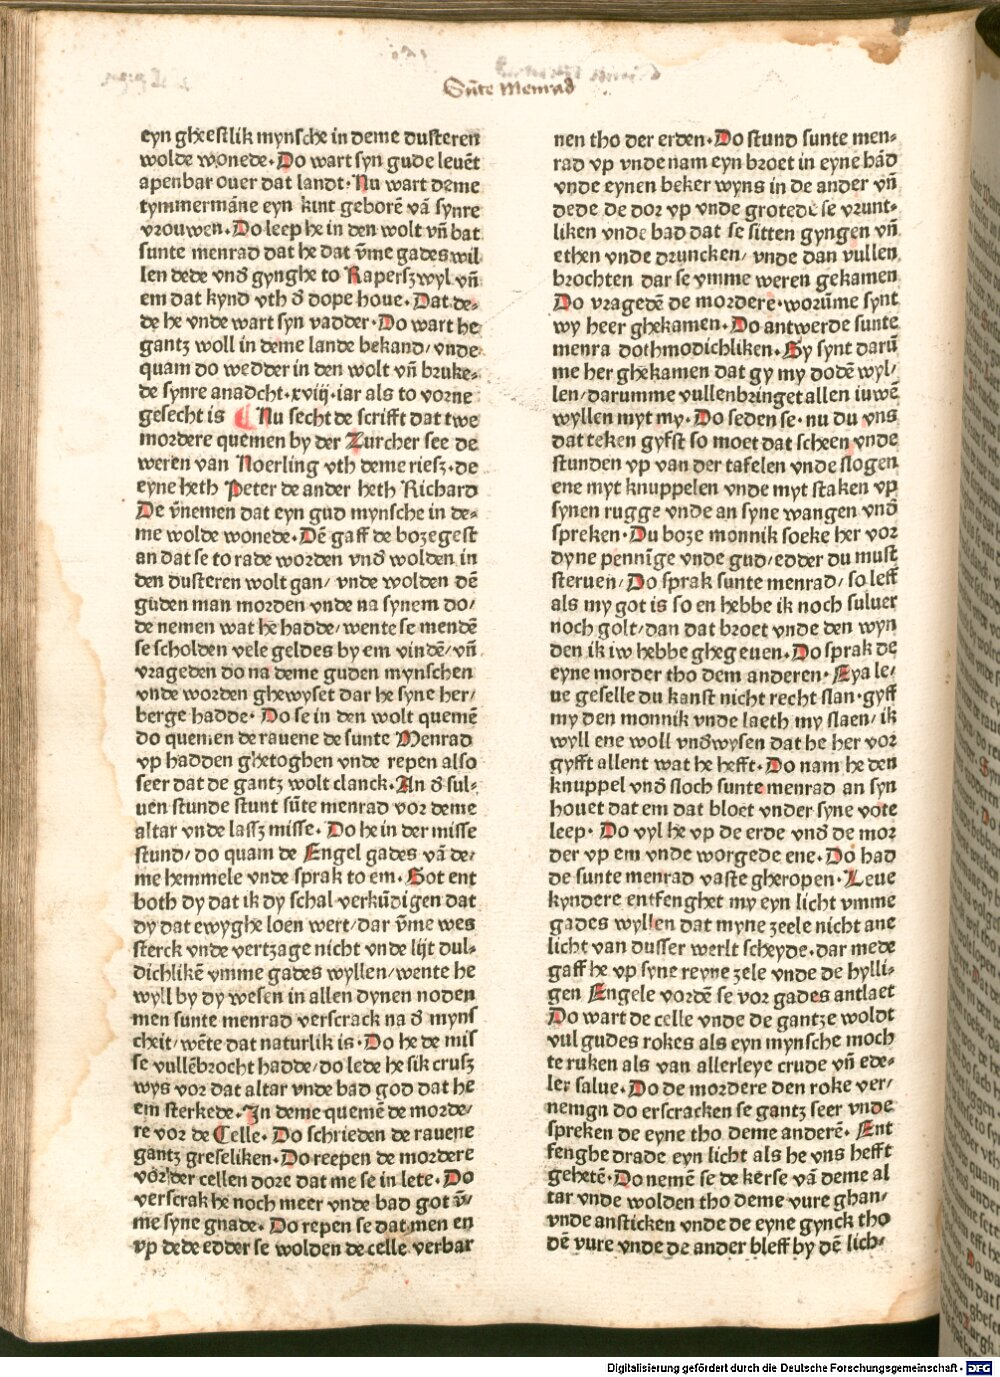 Sūte Menrad
eyn gheestlik mynsche in deme dusteren
wolde wonede. Do wart syn gude leuēt
apenbar ouer dat landt. Nu wart deme
tymmermāne eyn kint geborē vā synre
vrouwen. Do leep he in den wolt vn̄ bat
sunte menrad dat he dat v̄me gades wil
len dede vnd gynghe to Raperszwyl vn̄
em dat kynd vth d dope houe. Dat de-
de he vnde wart syn vadder. Do wart he
gantz woll in deme lande bekand/ vnde
quam do wedder in den wolt vn̄ bruke-
de synre anadcht. xviij. iar als to vorne
gesecht is ¶ Nu secht de scrifft dat twe
mordere quemen by der Zurcher see de
weren van Noerling vth deme riesz. de
eyne heth Peter de ander heth Richard
De v̄nemen dat eyn gud mynsche in de-
me wolde wonede. Dē gaff de boze gest
an dat se to rade worden vnd wolden in
den dusteren wolt gan/ vnde wolden dē
guden man morden vnde na synem do/
de nemen wat he hadde/ wente se mendē
se scholden vele geldes by em vindē/ vn̄
vrageden do na deme guden mynschen
vnde worden ghewyset dar he syne her/
berge hadde. Do se in den wolt quemē
do quemen de rauene de sunte Menrad
vp hadden ghetoghen vnde repen also
seer dat de gantz wolt clanck. An d sul-
uen stunde stunt sūte menrad vor deme
altar vnde lassz misse. Do he in der misse
stund/ do quam de Engel gades vā de/
me hemmele vnde sprak to em. Got ent
both dy dat ik dy schal verkūdigen dat
dy dat ewyghe loen wert/ dar v̄me wes
sterck vnde vertzage nicht vnde lijt dul-
dichlikē vmme gades wyllen/ wente he
wyll by dy wesen in allen dynen noden
men sunte menrad verscrack na d myns
cheit/ wēte dat naturlik is. Do he de mis
se vullēbrocht hadde/ do lede he sik crusz
wys vor dat altar vnde bad god dat he
em sterkede. In deme quemē de morde/
re vor de Celle. Do schrieden de rauene
gantz greseliken. Do reepen de mordere
vor der cellen dore dat me se in lete. Do
verscrak he noch meer vnde bad got v̄-
me syne gnade. Do repen se dat men en
vp dede edder se wolden de celle verbar
nen tho der erden. Do stund sunte men-
rad vp vnde nam eyn broet in eyne hād
vnde eynen beker wyns in de ander vn̄
dede de dor vp vnde grotede se vrunt-
liken vnde bad dat se sitten gyngen vn̄
ethen vnde druncken/ vnde dan vullen
brochten dar se vmme weren gekamen
Do vragedē de mordere. worūme synt
wy heer ghekamen. Do antwerde sunte
menra dothmodichliken. Gy synt darū
me her ghekamen dat gy my dodē wyl/
len/ darumme vullenbringet allen iuwē
wyllen myt my. Do seden se. nu du vns
dat teken gyfst so moet dat scheen vnde
stunden vp van der tafelen vnde slogen
ene myt knuppelen vnde myt staken vp
synen rugge vnde an syne wangen vnd
spreken. Du boze monnik soeke her vor
dyne pennīge vnde gud/ edder du must
steruen/ Do sprak sunte menrad/ so leff
als my got is so en hebbe ik noch suluer
noch golt/ dan dat broet vnde den wyn
den ik iw hebbe ghegeuen. Do sprak de
eyne morder tho dem anderen. Eya le/
ue geselle du kanst nicht recht slan. gyff
my den monnik vnde laeth my slaen/ ik
wyll ene woll vndwysen dat he her vor
gyfft allent wat he hefft. Do nam he den
knuppel vnd sloch sunte menrad an syn
houet dat em dat bloet vnder syne vote
leep. Do vyl he vp de erde vnd de mor
der vp em vnde worgede ene. Do had
de sunte menrad vaste gheropen. Leue
kyndere entfenghet my eyn licht vmme
gades wyllen dat myne zeele nicht ane
licht van dusser werlt scheyde. dar mede
gaff he vp syne reyne zele vnde de hylli-
gen Engele vordē se vor gades antlaet
Do wart de celle vnde de gantze woldt
vul gudes rokes als eyn mynsche moch
te ruken als van allerleye crude vn̄ ede-
ler salue. Do de mordere den roke ver/
nemgn do erscracken se gantz seer vnde
spreken de eyne tho deme anderē. Ent
fenghe drade eyn licht als he vns hefft
gehetē. Do nemē se de kerse vā deme al
tar vnde wolden tho deme vure ghan/
vnde ansticken vnde de eyne gynck tho
dē vure vnde de ander bleff by dē lich/
Digitalisierung gefördert durch die Deutsche Forschungsgemeinschaft - DFG